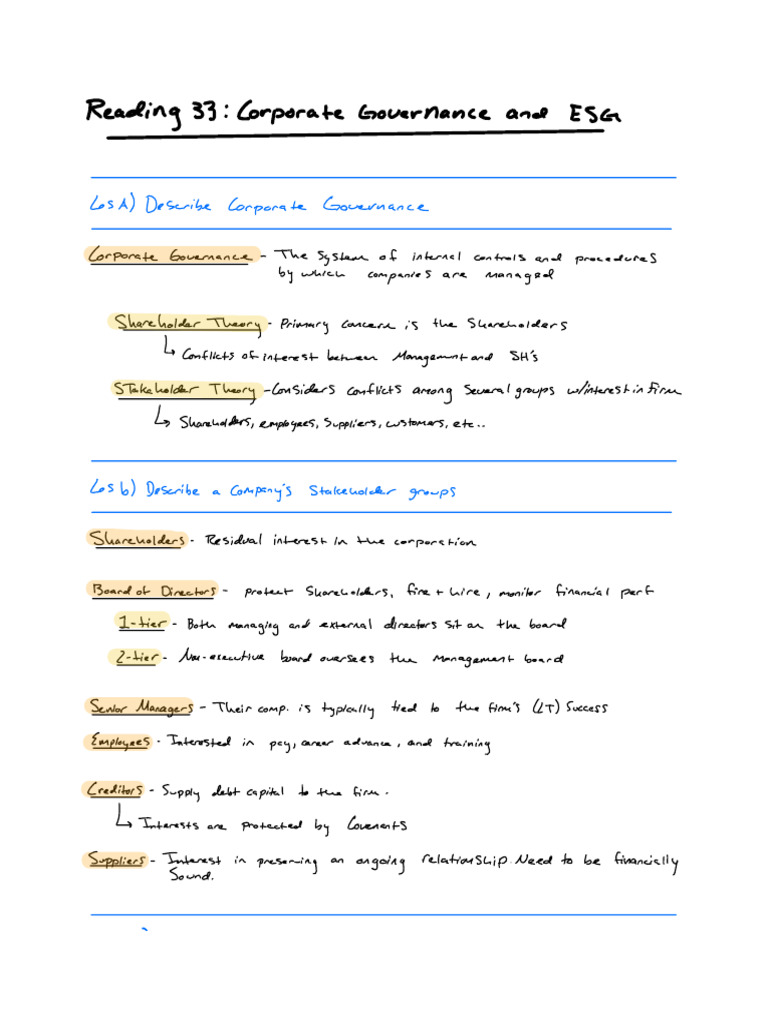 Reading 33: Corporate Governance and ESG
Los A) Describe Corporate Governance
Corporate Governance - The system of internal controls and procedures
by which companies are managed
Shareholder Theory - Primary concern is the Shareholders
↳ Conflicts of interest between Management and SH's
Stakeholder Theory - Considers conflicts among several groups w/interest in firm
↳ Shareholders, employees, suppliers, customers, etc..
Los b) Describe a Company's Stakeholder groups
Shareholders - Residual interest in the corporation
Board of Directors - protect shareholders, fire + hire, monitor financial perf
1-tier - Both managing and external directors sit on the board
2-tier - Non-executive board oversees the management board
Senior Managers - Their comp. is typically tied to the firm's (LT) Success
Employees - Interested in pay, career advance, and training
Creditors - Supply debt capital to the firm.
↳ Interests are protected by Covenants
Suppliers - Interest in preserving an ongoing relationship. Need to be financially
Sound.